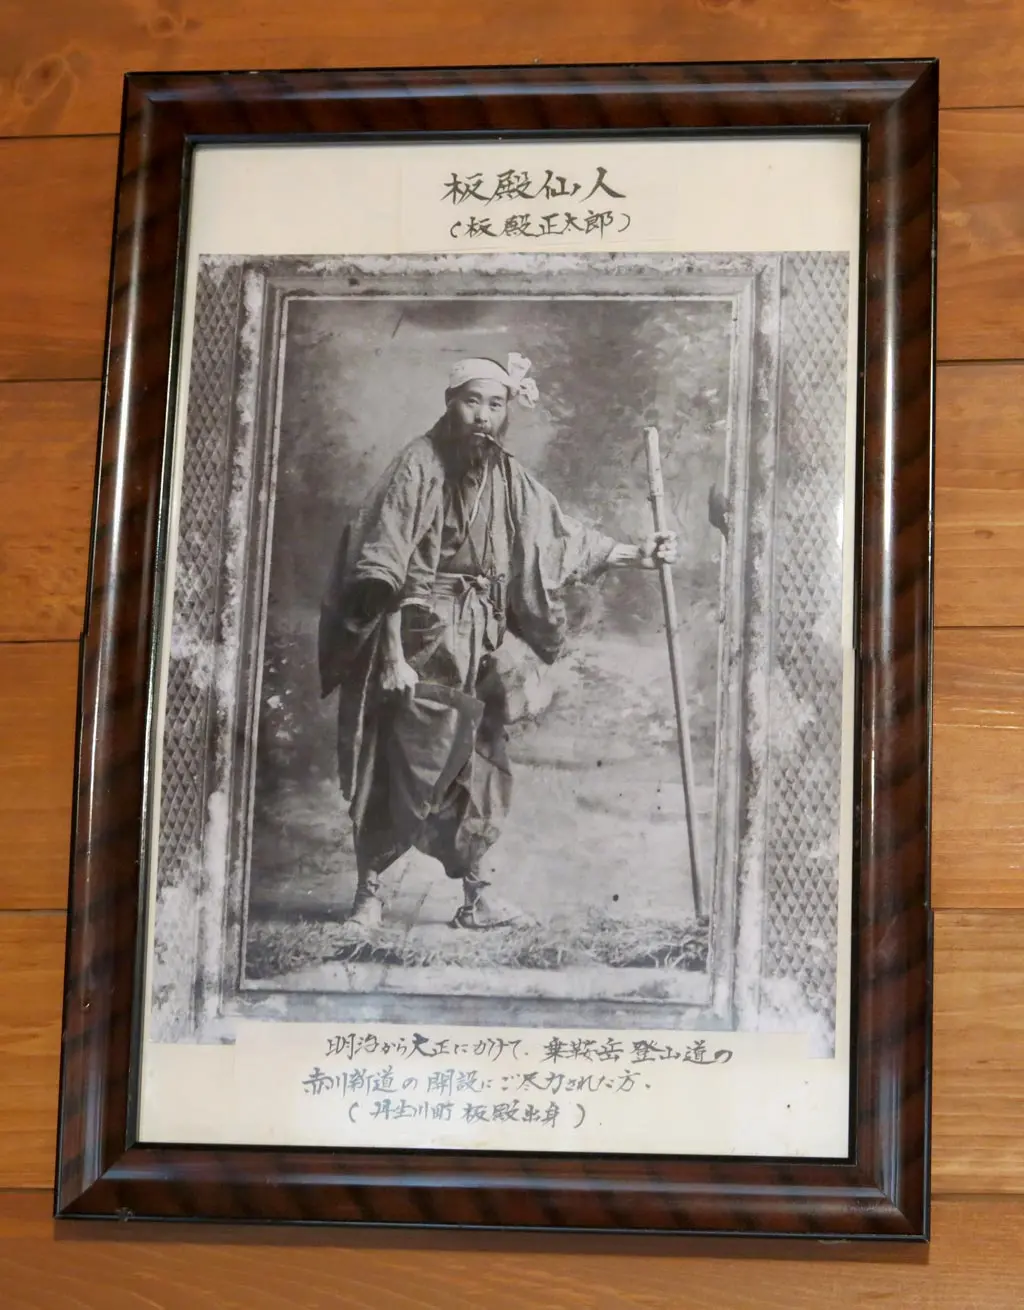 板殿仙人
(板殿正太郎)
明治から大正にかけて、乗鞍岳登山道の
赤川新道の開設にご尽力された方。
(丹生川町 板殿出身)